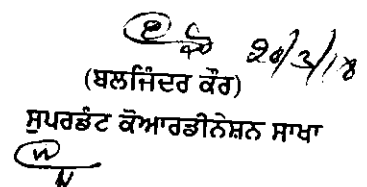 20/3/18
(ਬਲਜਿੰਦਰ ਕੌਰ)
ਸੁਪਰਡੰਟ ਕੋਆਰਡੀਨੇਸ਼ਨ ਸਾਖਾ